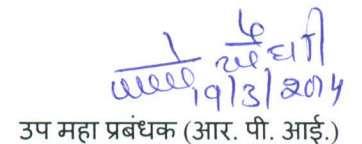 19/3/2014
उप महा प्रबंधक (आर. पी. आई.)